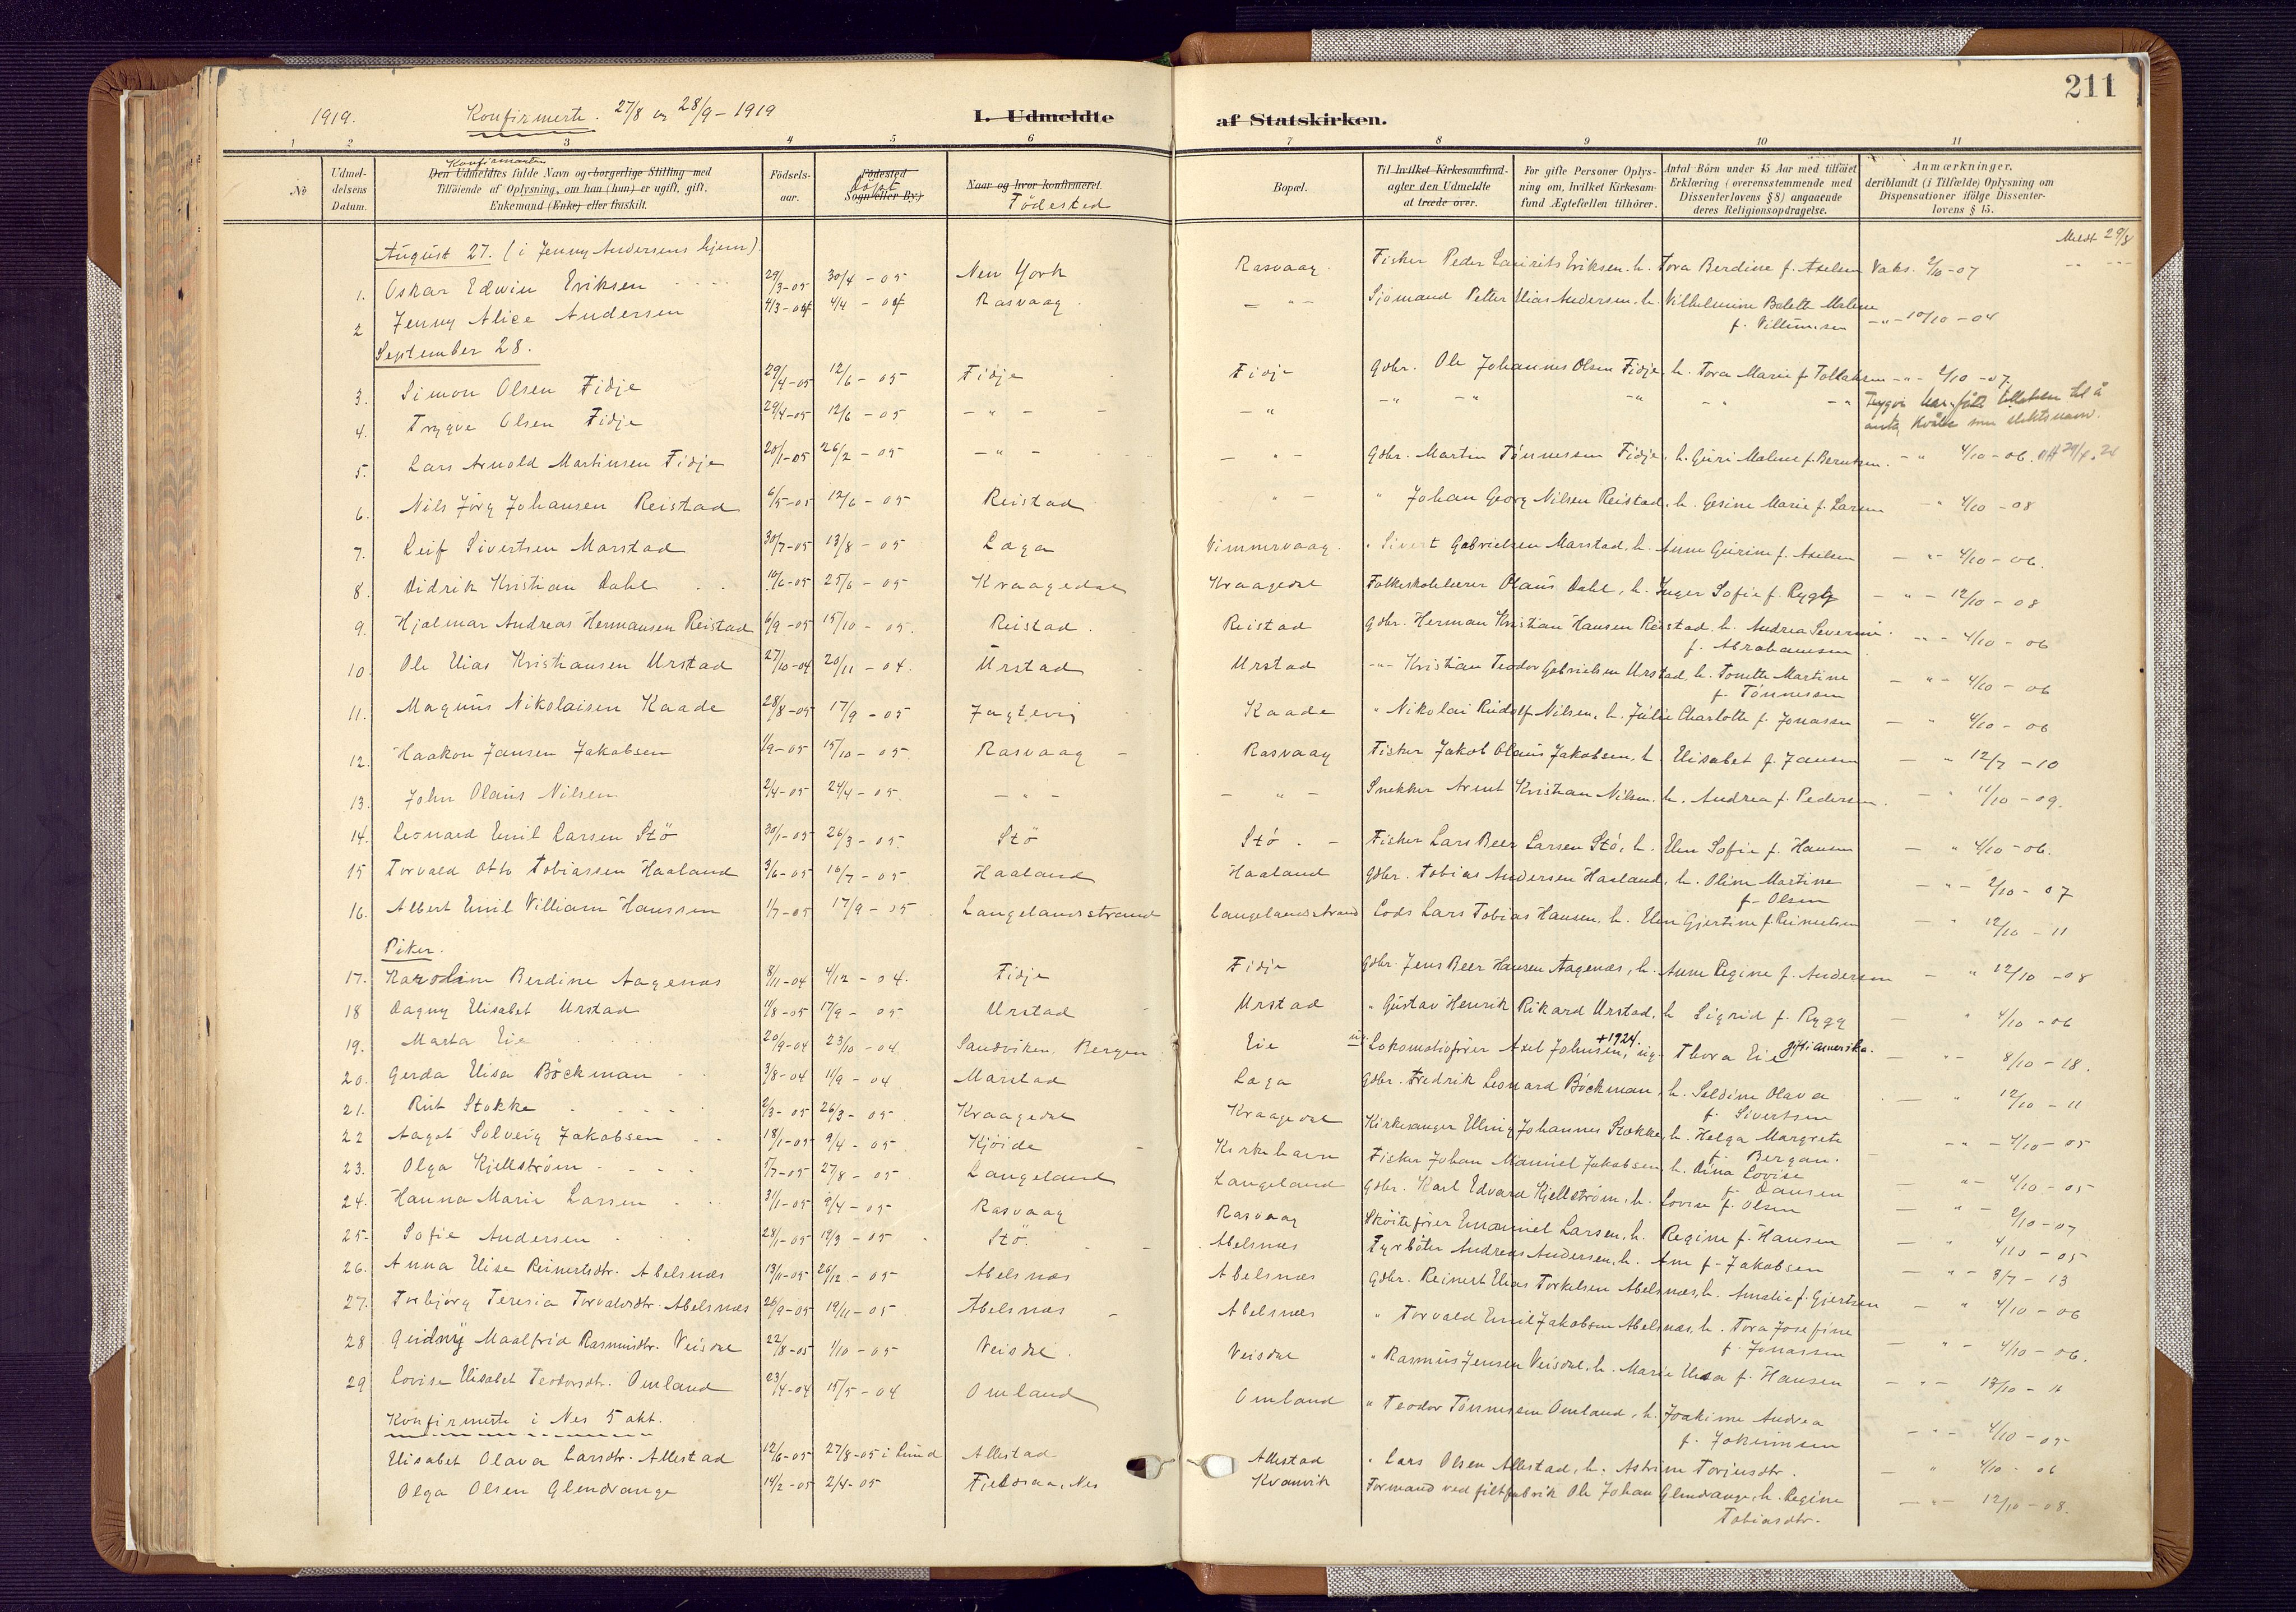 211
1919. Konfirmerte. 27/8 og 28/9 - 1919 I. Udmeldte af Statskirken.
1 2 3 4 5 6 7 8 9 10 11
No
Udmeldelsens Datum.
Konfirmanten
Den Udmeldtes fulde Navn og borgerlige Stilling med
Tilföiende af Oplysning, om han (hun) er ugift, gift,
Enkemand (Enke) eller fraskilt.
Födselsaar.
Födested
Döpt
Sogn (eller By.)
Naar og hvor konfirmeret.
Födested
Bopæl.
Til hvilket Kirkesamfund
agter den Udmeldte
at træde over.
For gifte Personer Oplysning om, hvilket Kirkesamfund Ægtefællen tilhörer.
Antal Börn under 15 Aar med tilföiet
Erklæring (overensstemmende med
Dissenterlovens § 8) angaaende
deres Religionsopdragelse.
Anmærkninger,
deriblandt (i Tilfælde) Oplysning om
Dispensationer ifölge Dissenterlovens § 15.
August 27. (i Jenny Andersens hjem) Meldt 29/8
1. Oskar Edwin Eriksen 29/3-05 30/4-05 New York Rasvaag Fisker Peder Laurits Eriksen, h. Tora Berdine f. Axelsen Vaks. 2/10-07
2 Jenny Alice Andersen 4/3-04 4/4-04 Rasvaag - " - Sjömand Petter Elias Andersen, h. Vilhelmine Bolette Malene
f. Villumsen - " - 10/10-04
September 28.
3. Simon Olsen Fidje 29/4-05 12/6-05 Fidje Fidje Gdbr. Ole Johannes Olsen Fidje, h. Tora Marie f. Tollaksen - " - 2/10-07
4. Trygve Olsen Fidje 29/4-05 12/6-05 - " - - " - " - " - " - " - " Trygve har fått tillatelse til å
antg. som slektsnavn.
5. Lars Arnold Martinsen Fidje 20/1-05 26/2-05 - " - - " - Gdbr. Martin Tönnessen Fidje, h. Guri Malene f. Berntsen. - " 4/10-06.
6. Nils Jörg Johansen Reistad 6/5-05 12/6-05 Reistad " - " Johan Georg Nilsen Reistad, h. Gesine Marie f. Larsen - " 4/10-08
7. Leif Sivertsen Marstad 30/7-05 13/8-05 Laga Vimmervaag. " Sivert Gabrielsen Marstad, h. Anne Gurine f. Axelsen - " - 4/10-06.
8. Didrik Kristian Dahl 10/6-05 25/6-05 Kraagedal Kraagedal Folkeskolelærer Olaus Dahl, h. Inger Sofie f. Rygg - " - 12/10-08
9. Hjalmar Andreas Hermansen Reistad 6/9-05 15/10-05. Reistad. Reistad Gdbr. Herman Kristian Hansen Reistad h. Andrea Severine
f. Abrahamsen - " - 4/10-06
10. Ole Elias Kristiansen Urstad 27/10-04 20/11-04. Urstad Urstad - " - Kristian Teodor Gabrielsen Urstad, h. Tonette Martine
f. Tönnesen - " - 4/10-06
11. Magnus Nikolaisen Kaade 28/8-05 17/9-05 Jagtevig Kaade " Nikolai Rudolf Nilsen, h. Julie Charlotte f. Jonassen - " 4/10-06
12. Haakon Jansen Jakobsen 1/9-05 15/10-05. Rasvaag Rasvaag Fisker Jakob Olaus Jakobsen, h. Elisabet f. Jansen - " 12/7-10
13. John Olaus Nilsen 2/4-05 24/4-05. - " - - " - Snekker Arent Kristian Nilsen, h. Andrea f. Pedersen. - " 11/10-09.
14. Leonard Emil Larsen Stö 30/1-05 26/3-05. Stö Stö. Fisker Lars Beer Larsen Stö, h. Elen Sofie f. Hansen - " 4/10-06.
15 Torvald Otto Tobiassen Haaland 3/6-05 16/7-05 Haaland Haaland Gdbr. Tobias Andersen Haaland, h. Oline Martine
f. Olsen - " - 2/10-07
16. Albert Emil Villiam Hanssen 1/7-05 17/9-05 Langelandsstrand Langelandsstrand Lods Lars Tobias Hansen, h. Elen Gjertine f. Reinertsen - " 12/10-11
Piker.
17. Karoline Berdine Aagenæs 8/11-04 4/12-04. Fidje Fidje Gdbr. Jens Beer Hansen Aagenæs, h. Anne Regine f. Andersen - " 22/10-08
18 Dagny Elisabet Urstad 11/8-05 17/9-05 Urstad Urstad " Gustav Henrik Rikard Urstad, h Sigrid f. Rygg - " 4/10-06
19. Marta Eie 20/9-04 23/10-04. Sandviken, Bergen Eie ug. Lokomotivförer Axel Johnsen, +1924. ug. Thora Eie gift i Amerika. - " - 8/10-18.
20. Gerda Elisa Böckman 3/8-04 11/9-04 Marstad Laga Gdbr. Fredrik Leonard Böckman, h. Seldine Olava
f. Sivertsen - " 12/10-11
21. Rut Stokke 2/3-05 26/3-05. Kraagedal Kraagedal Kirkesanger Elling Johannes Stokke, h. Helga Margrete
f. Bergan. - " - 4/10-05
22 Aagot Solveig Jakobsen 18/1-05 9/4-05. Kjöide Kirkehavn Fisker Johan Manuel Jakobsen, h. Dina Lovise
f. Dausen - " - 4/10-05
23. Olga Kjellström 5/7-05 27/8-05 Langeland Langeland Gdbr. Karl Edvard Kjellström, h. Lovise f. Olsen - " - 2/10-07
24. Hanna Marie Larsen 31/1-05 9/4-05 Rasvaag Rasvaag Sköitefører Emanuel Larsen, h. Regine f. Hansen - " 4/10-05
25. Sofie Andersen 28/1-05 19/3-05 Stö. Abelsnæs Fyrböter Andreas Andersen, h. Ane f. Jakobsen - " - 8/7-13
26. Anna Elise Reinertsdtr. Abelsnæs 13/11-05 26/12-05 Abelsnæs Abelsnæs Gdbr. Reinert Elias Torkelsen Abelsnæs, h. Amalie f. Gjertsen - " 4/10-06
27. Torbjörg Teresia Torvaldsdtr. Abelsnæs 26/9-05 19/11-05. Abelsnæs Abelsnæs " Torvald Emil Jakobsen Abelsnæs, h. Tora Josefine
f. Jonassen - " - 4/10-06.
28 Gudny Maalfrid Rasmusdtr. Veisdal 22/8-05 1/10-05 Veisdal. Veisdal " Rasmus Jensen Veisdal, h. Marie Elisa f. Hansen - " - 13/10-11
29 Lovise Elisabet Teodorsdtr. Omland 23/4-04 15/5-04 Omland Omland " Teodor Tönnesen Omland, h. Joakime Andrea
f. Jokimsen - " - 4/10-05
Konfirmerte i Nes 5 okt.
Elisabet Olava Larsdtr. Allestad 12/6-05 27/8-05 i Lund Allestad Allestad " Lars Olsen Allestad, h. Astrine Torjusdtr. - " 4/10-06
Olga Olsen Glendrange 14/2-05 2/4-05 Fjeldsaa, Nes Kvanvik Formand ved filtfabrik Ole Johan Glendrange, h. Regine
Tobiasdtr. - " - 12/10-08.